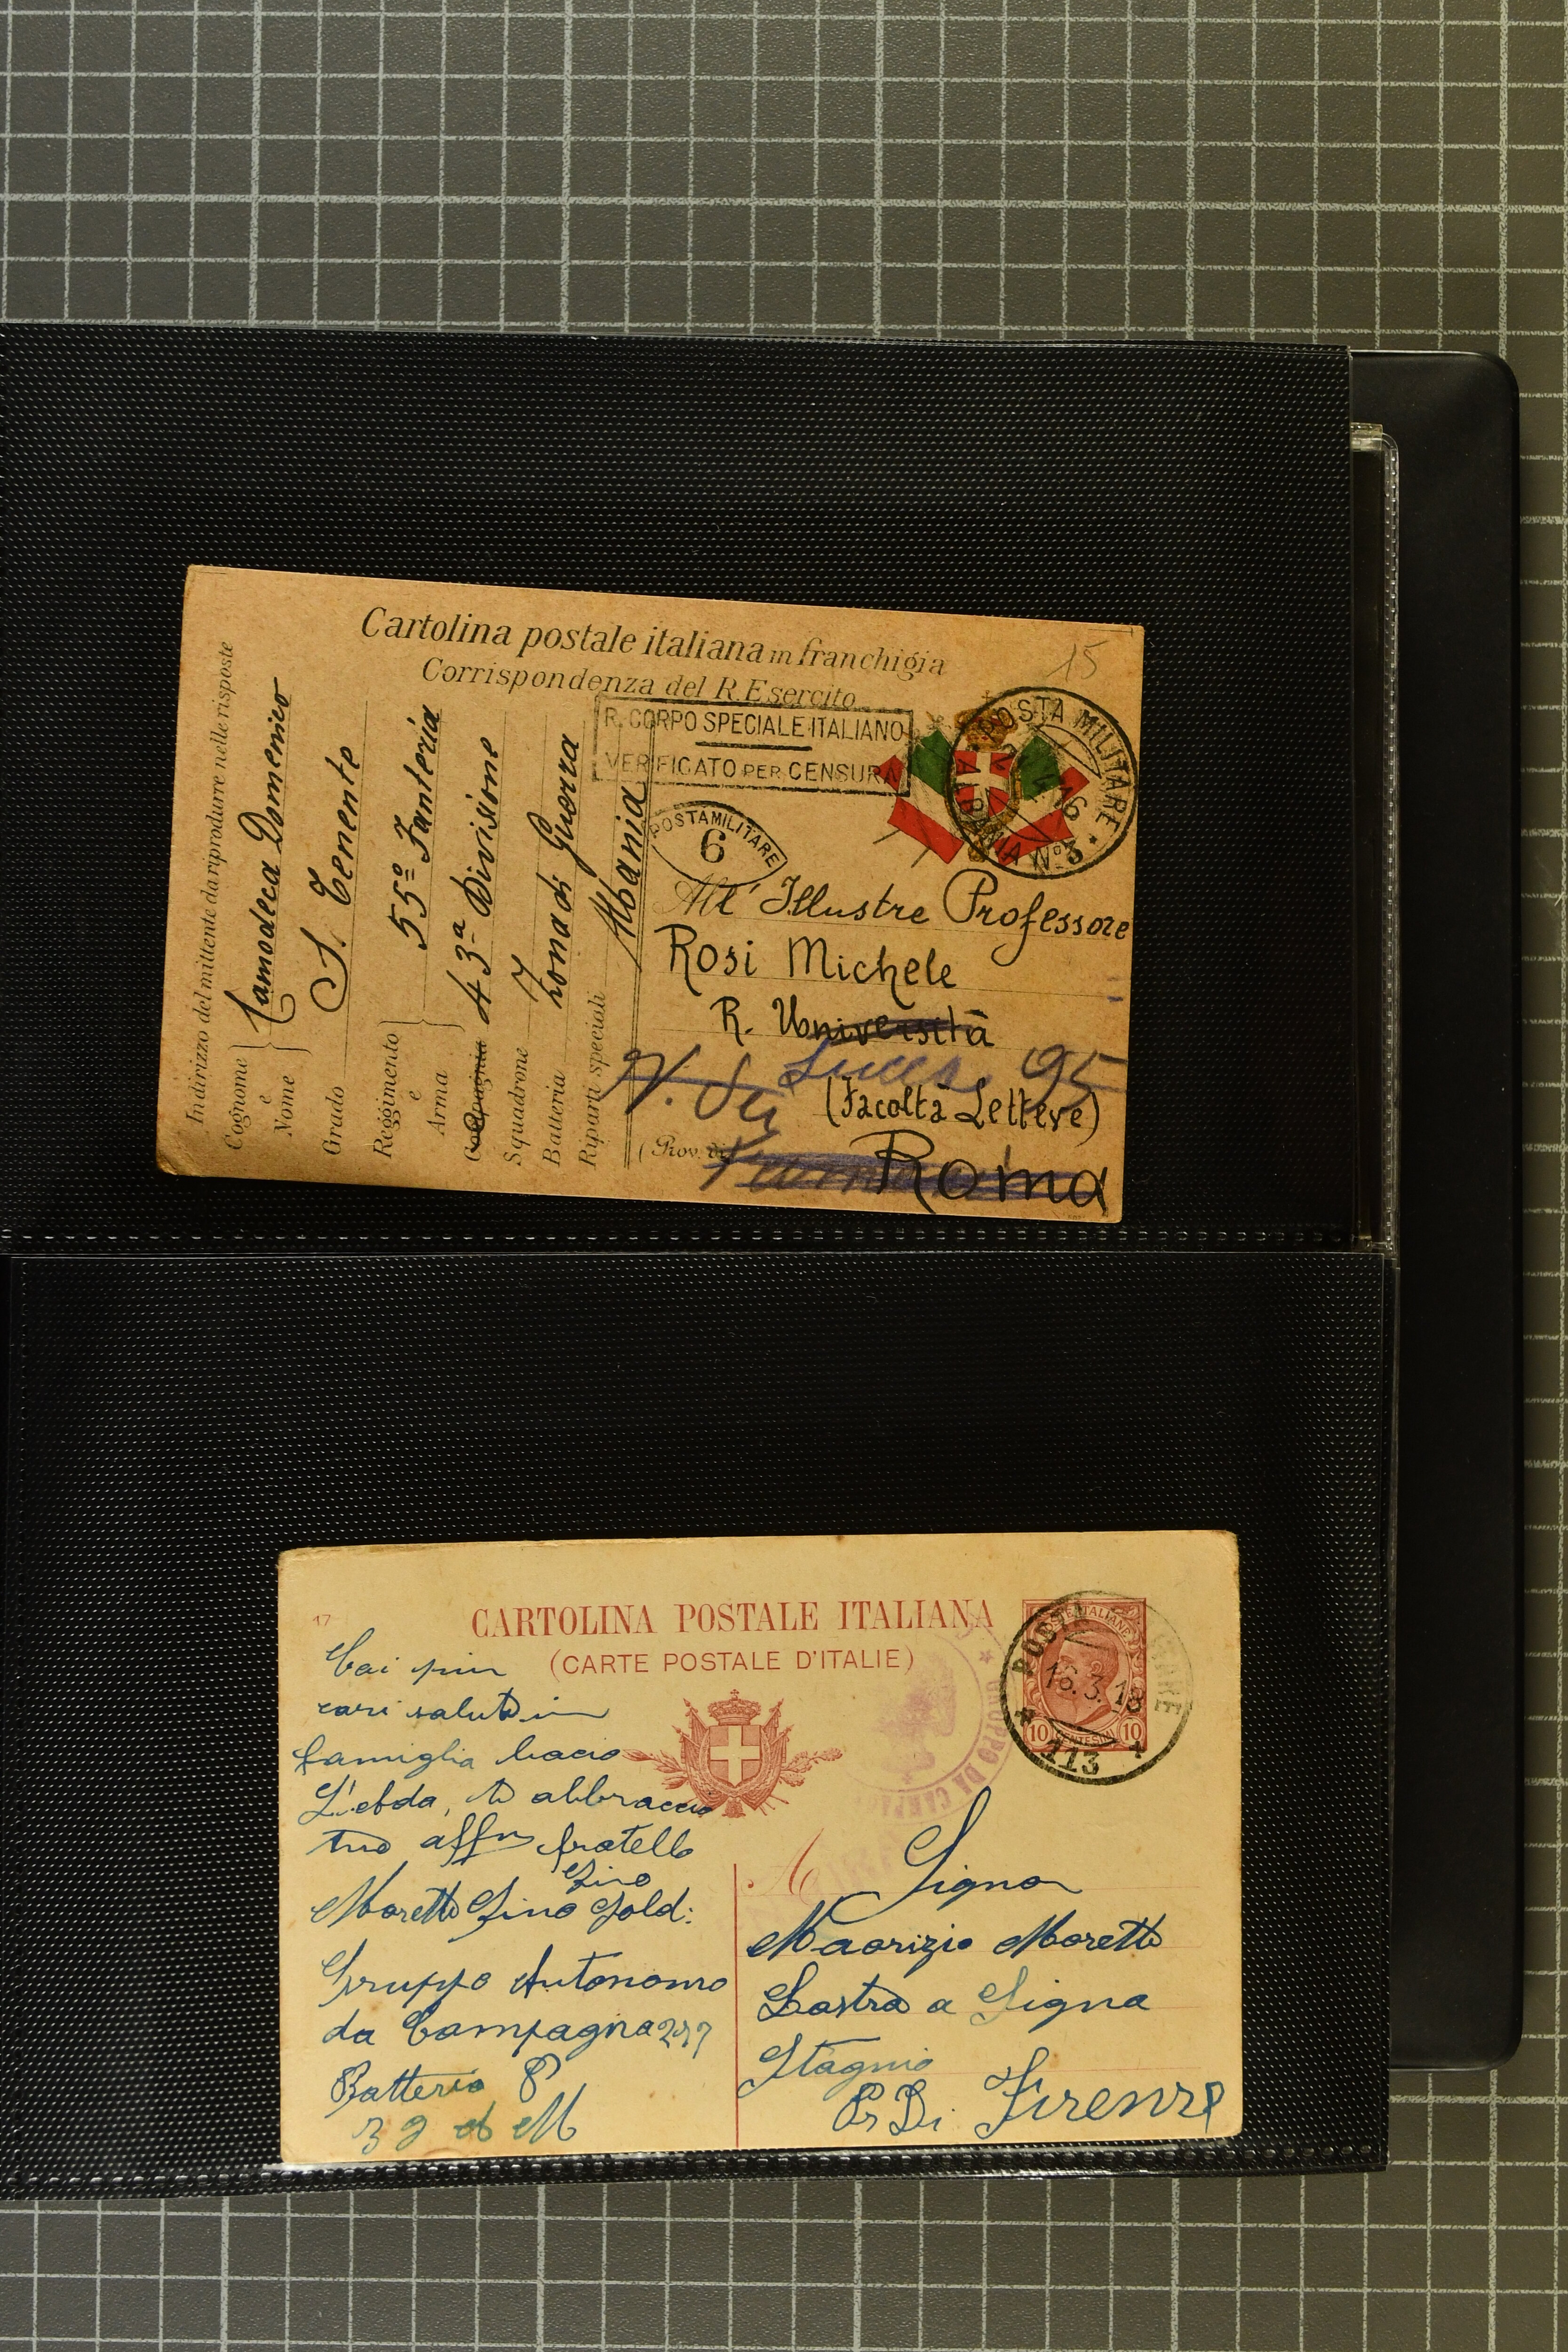 Cartolina postale italiana in franchigia
Corrispondenza del R. Esercito
15
Indirizzo del mittente da riprodurre nelle risposte
Cognome e Nome
Camodeca Domenico
Grado S. Tenente
Reggimento e Arma 55º Fanteria
43ª Divisione
Squadrone
Batteria Zona di Guerra
Riparti speciali Albania
R. CORPO SPECIALE ITALIANO
VERIFICATO PER CENSURA
POSTA MILITARE
6
POSTA MILITARE
16
ALBANIA Nº 3
All' Illustre Professore
Rosi Michele
R. Università
V. dei 95
(Facoltà Lettere)
(Prov. di
Roma
17
CARTOLINA POSTALE ITALIANA
(CARTE POSTALE D'ITALIE)
POSTE ITALIANE
10 CENTESIMI 10
16.3.18
113
GRUPPO DI
cari saluti in
famiglia bacio
ti abbraccio
tuo affmo fratello
Gino
Moretti Gino Sold:
Gruppo Autonomo
da Campagna
Batteria
Signor
Maorizio Moretti
Lastra a Signa
Stagnio
Pr Di Firenze